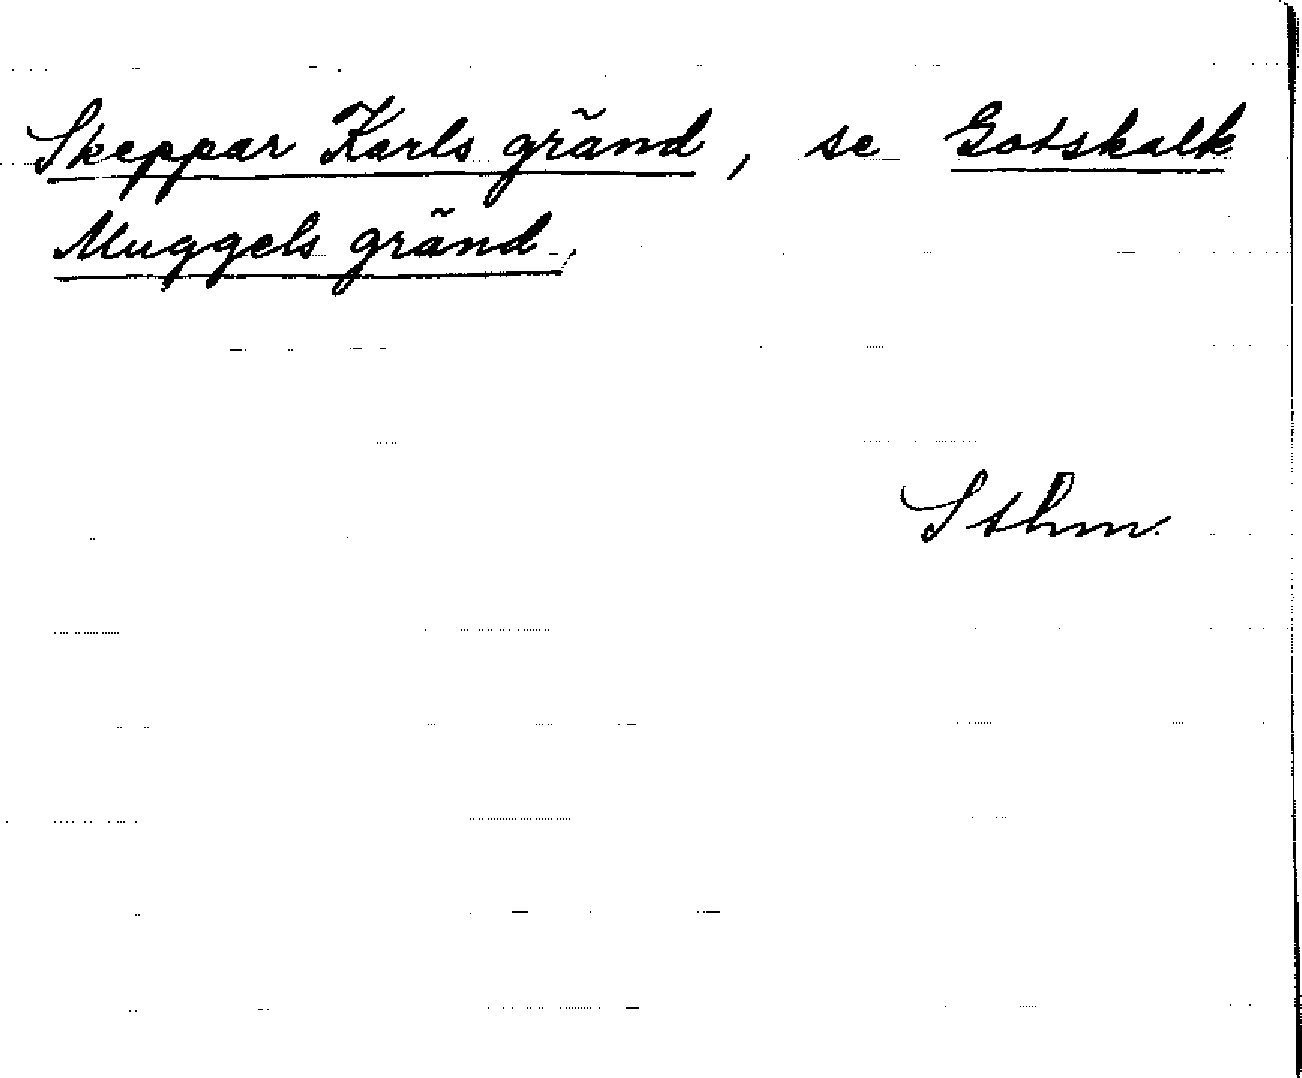 Skeppar Karls gränd, se Gotskalk
Muggels gränd,
Sthm.